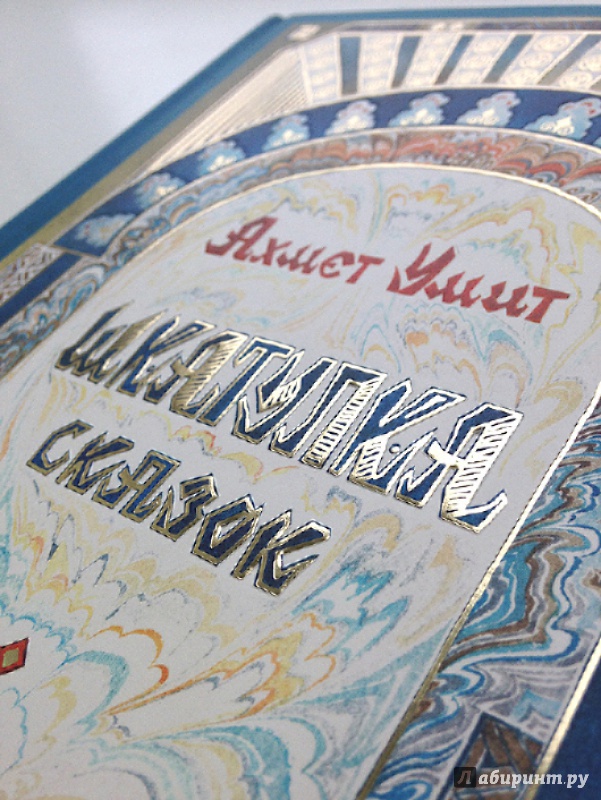 Ахмет Умит
ШКАТУЛКА
СКАЗОК
Лабиринт.ру